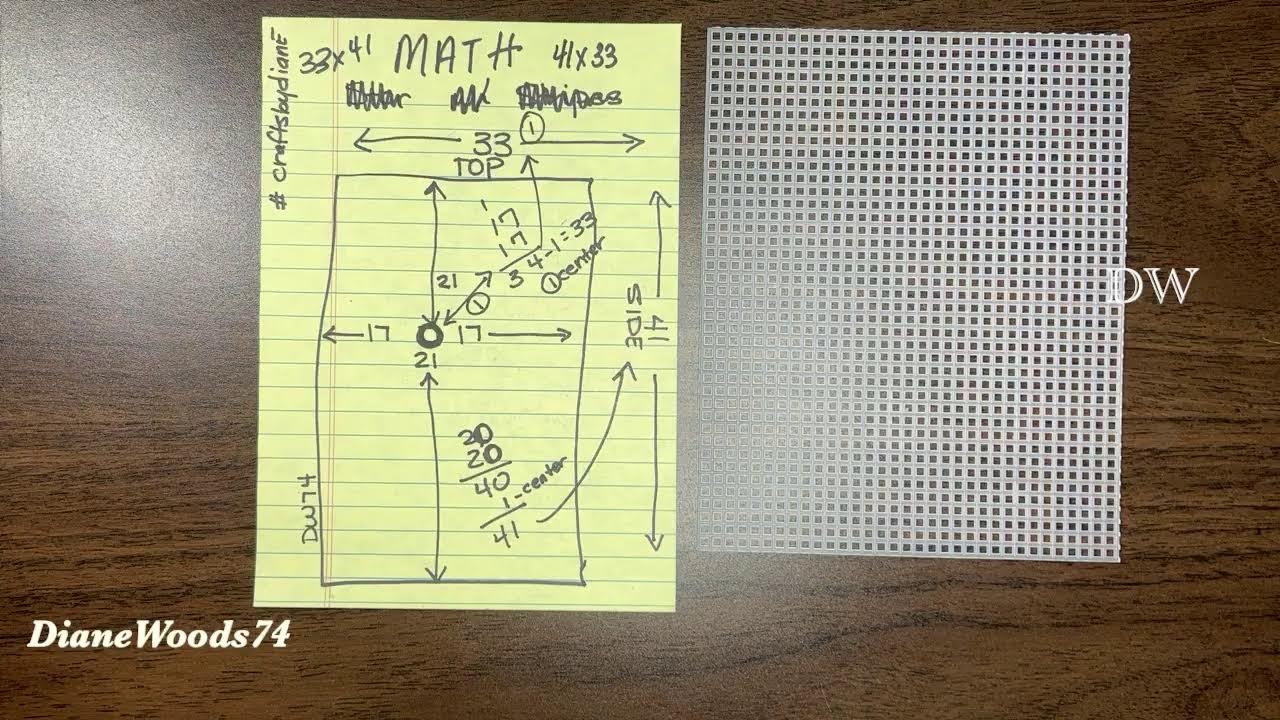 # craftsbydiane
33x41 MATH 41x33
33 1
TOP
17
17
34-1=33
1 center
21
1
17 17
21
41
SIDE
20
20
40
1-center
41
DW74
DW
DianeWoods74